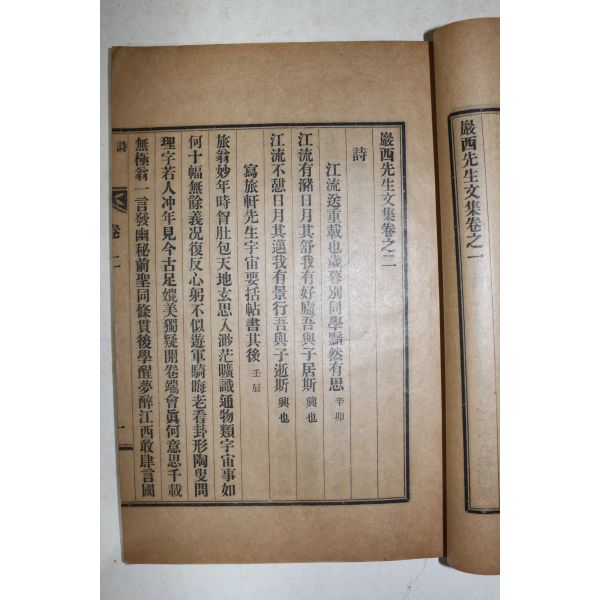 巖西先生文集卷之一
巖西先生文集卷之二
詩
江流送重載也歲暮別同學黯然有思 辛卯
江流有瀦日月其舒我有好廬吾與子居斯 興也
江流不憩日月其邁我有景行吾與子逝斯 興也
寫旅軒先生宇宙要括帖書其後 壬辰
旅翁妙年時胷肚包天地玄思入渺茫曠識通物類宇宙事如
何十幅無餘義况復反心躬不似遊軍騎晦老看卦形陶叟問
理字若人冲年見今古足媲美獨疑開卷端會眞何意思千載
無極翁一言發幽秘前聖同條貫後學醒夢醉江西敢肆言國
詩
卷二
一